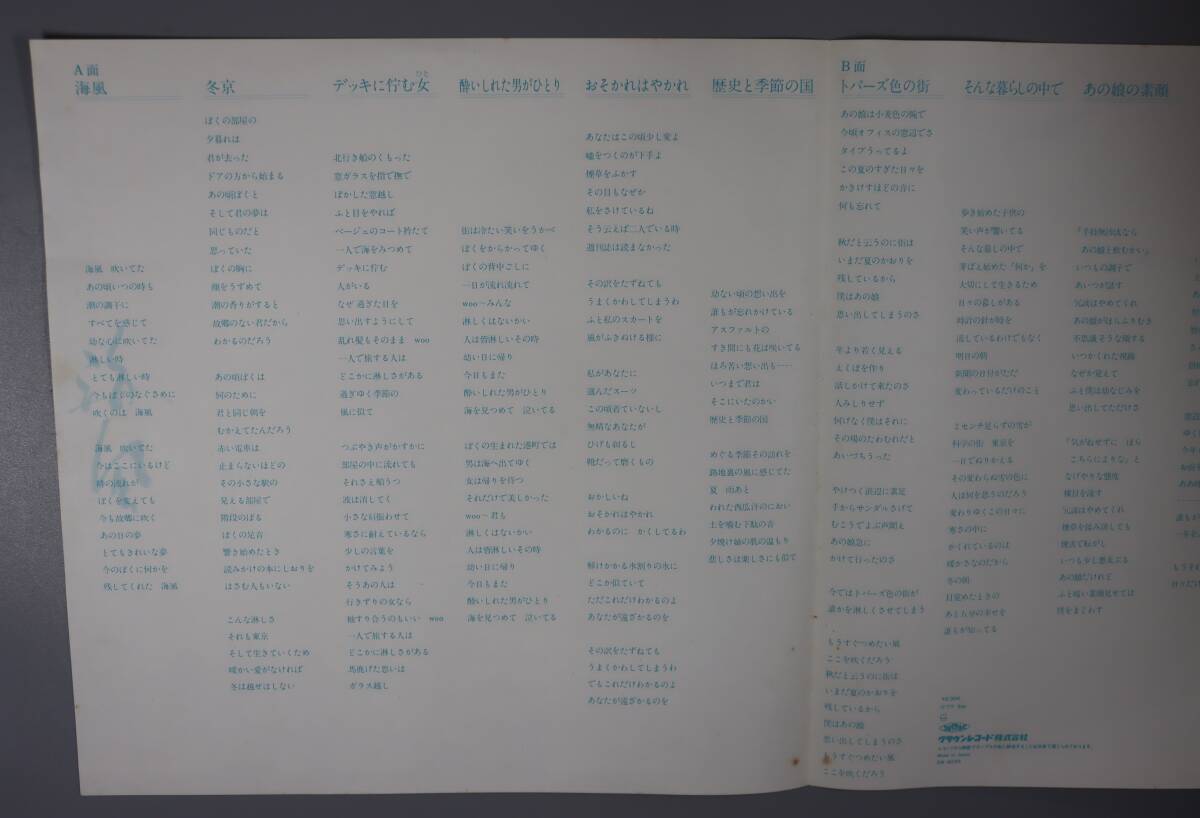 A面
海風
海風　吹いてた
あの頃いつの時も
潮の調子に
すべてを感じて
幼な心に吹いてた
淋しい時
とても淋しい時
今もぼくのなぐさめに
吹くのは　海風
海風　吹いてた
今はここにいるけど
時の流れが
ぼくを変えても
今も故郷に吹く
あの日の夢
とてもきれいな夢
今のぼくに何かを
残してくれた　海風
冬京
ぼくの部屋の
夕暮れは
君が去った
ドアの方から始まる
あの頃ぼくと
そして君の夢は
同じものだと
思っていた
ぼくの胸に
顔をうずめて
潮の香りがすると
故郷のない君だから
わかるのだろう
あの頃ぼくは
何のために
君と同じ朝を
むかえてたんだろう
赤い電車は
止まらないほどの
その小さな駅の
見える部屋で
階段のぼる
ぼくの足音
響き始めたとき
読みかけの本にしおりを
はさむ人もいない
こんな淋しさ
それも東京
そして生きていくため
暖かい愛がなければ
冬は越せはしない
デッキに佇む女
ひと
北行き船のくもった
窓ガラスを指で撫で
ぼかした窓越し
ふと目をやれば
ベージュのコート衿たて
一人で海をみつめて
デッキに佇む
人がいる
なぜ 過ぎた日を
思い出すようにして
乱れ髪もそのまま　woo
一人で旅する人は
どこかに淋しさがある
過ぎゆく季節の
風に似て
つぶやき声がかすかに
部屋の中に流れても
それさえ船うつ
波は消してく
小さな肩振わせて
寒さに耐えているなら
少しの言葉を
かけてみよう
そうあの人は
行きずりの女なら
袖すり合うのもいい　woo
一人で旅する人は
どこかに淋しさがある
馬鹿げた思いは
ガラス越し
酔いしれた男がひとり
街は冷たい笑いをうかべ
ぼくをからかってゆく
ぼくの背中ごしに
一日が流れ流れて
woo〜みんな
淋しくはないかい
人は皆淋しいその時
幼い日に帰り
今日もまた
酔いしれた男がひとり
海を見つめて　泣いてる
ぼくの生まれた港町では
男は海へ出てゆく
女は帰りを待つ
それだけで美しかった
woo〜君も
淋しくはないかい
人は皆淋しいその時
幼い日に帰り
今日もまた
酔いしれた男がひとり
海を見つめて　泣いてる
おそかれはやかれ
あなたはこの頃少し変よ
嘘をつくのが下手よ
煙草をふかす
その目もなぜか
私をさけているね
そう云えば二人でいる時
週刊誌は読まなかった
その訳をたずねても
うまくかわしてしまうわ
ふと私のスカートを
風がふきぬける様に
私があなたに
選んだスーツ
この頃着ていないし
無精なあなたが
ひげも剃るし
靴だって磨くもの
おかしいね
おそかれはやかれ
わかるのに　かくしてるわ
解けかかる水割りの氷に
どこか似ていて
ただこれだけわかるのよ
あなたが遠ざかるのを
その訳をたずねても
うまくかわしてしまうわ
でもこれだけわかるのよ
あなたが遠ざかるのを
歴史と季節の国
幼ない頃の想い出を
誰もが忘れかけている
アスファルトの
すき間にも花は咲いてる
ほろ苦い想い出も……
いつまで君は
そこにいたのかい
歴史と季節の国
めぐる季節その訪れを
路地裏の風に感じてた
夏　雨あと
われた西瓜のにおい
土を噛む下駄の音
夕焼け 姉の肌の温もり
悲しさは楽しさにも似て
B面
トパーズ色の街
あの娘は小麦色の腕で
今頃オフィスの窓辺でさ
タイプうってるよ
この夏のすぎた日々を
かきけすほどの音に
何も忘れて
秋だと云うのに街は
いまだ夏のかおりを
残しているから
僕はあの娘
思い出してしまうのさ
年より若く見える
えくぼを作り
話しかけて来たのさ
人みしりせず
何げなく僕はそれに
その場のたわむれだと
あいづちうった
やけつく浜辺に素足
手からサンダルさげて
むこうでよぶ声聞え
あの娘急に
かけて行ったのさ
今ではトパーズ色の街が
誰かを淋しくさせてしまう
もうすぐつめたい風
ここを吹くだろう
秋だと云うのに街は
いまだ夏のかおりを
残しているから
僕はあの娘
思い出してしまうのさ
もうすぐつめたい風
ここを吹くだろう
そんな暮らしの中で
歩き始めた子供の
笑い声が響いてる
そんな暮しの中で
芽ばえ始めた「何か」を
大切にして生きるため
日々の暮しがある
時計の針が時を
流しているわけでもなく
明日の朝
新聞の日付がただ
変わっているだけのこと
2センチ足らずの雪が
科学の街　東京を
一日でぬりかえる
その変わらぬ雪の色に
人は何を思うのだろう
変わりゆくこの日々に
寒さの中に
かくれているのは
暖かさなのだから
冬の朝
目覚めたときの
あと五分の幸せを
誰もが知ってる
あの娘の素顔
「手持無沙汰なら
あの娘と飲むかい」
いつもの調子で
あいつが話す
冗談はやめてくれ
あの娘がほらふりむき
不思議そうな顔する
いつかくれた視線
なぜか覚えて
ふと僕は幼なじみを
思い出してただけさ
「気がねせずに　ほら
こちらによりな」と
なげやりな態度
横目を流す
冗談はやめてくれ
煙草を揉み消しても
煙舌でねがし
いつも少し悪ぶる
あの娘だけれど
ふと暗い素顔見せては
僕をまどわす
クラウンレコード株式会社
Made in Japan